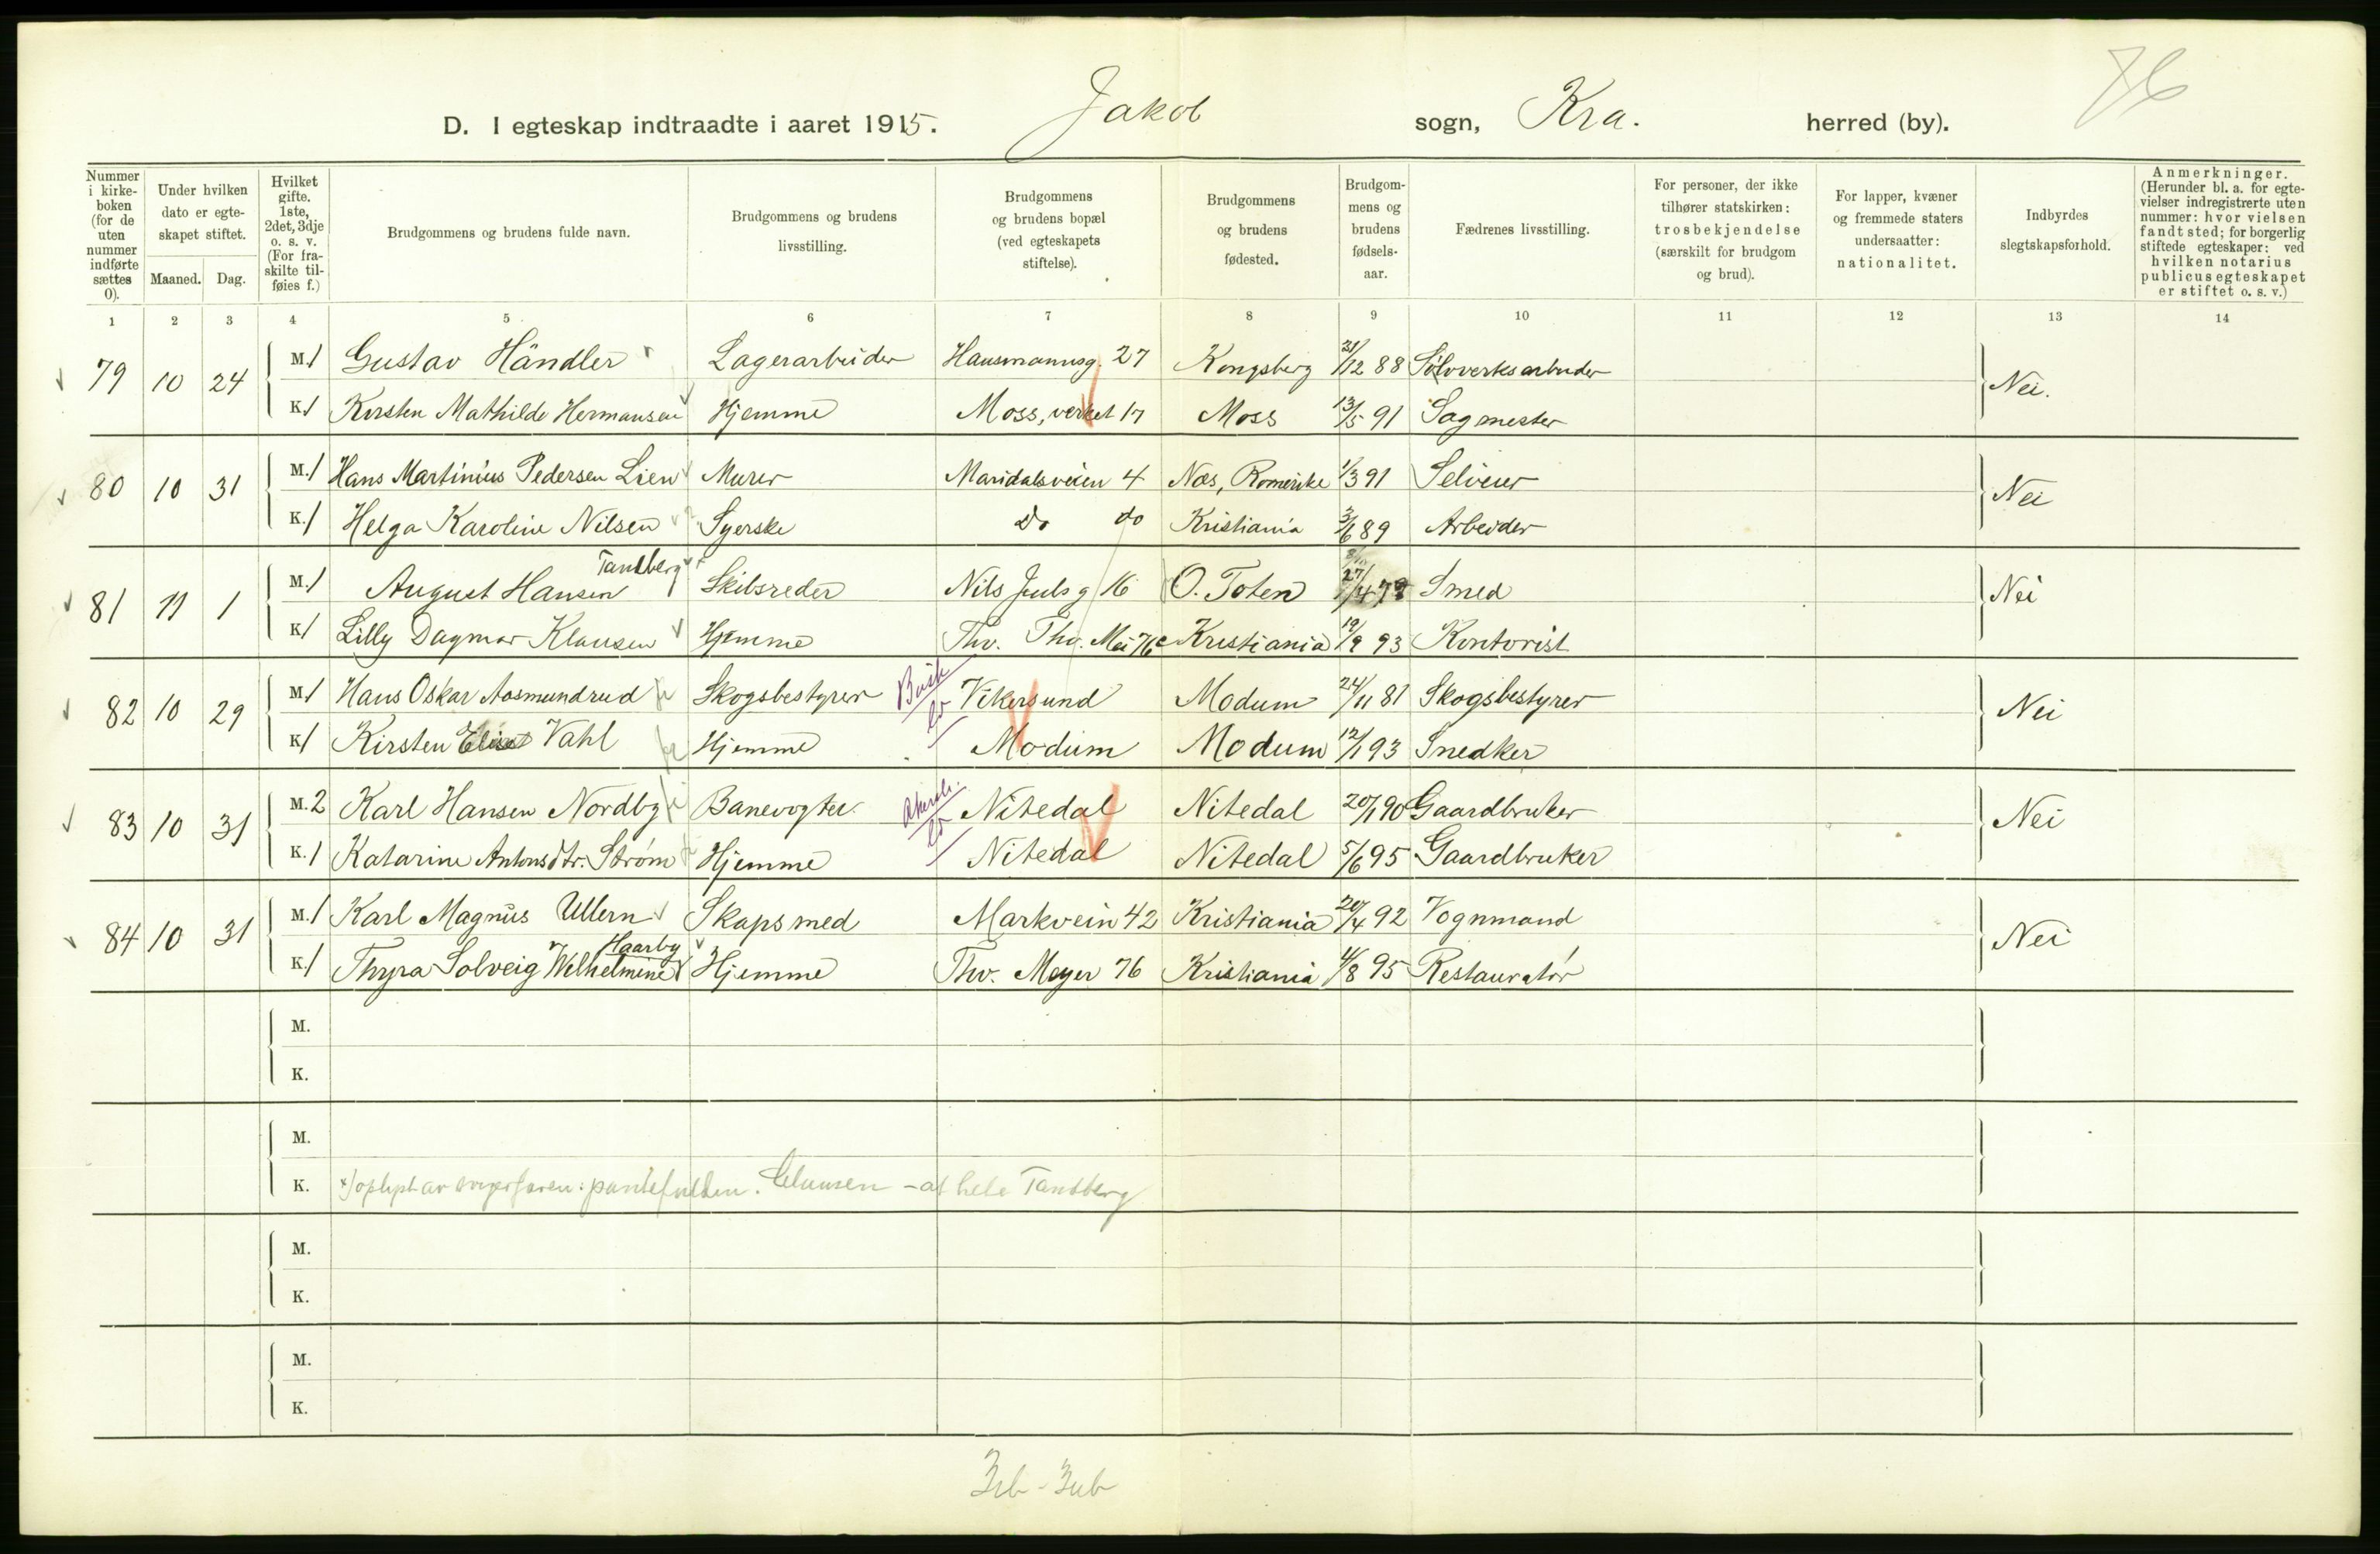 76
D. I egteskap indtraadte i aaret 1915. Jakob sogn, Kra. herred (by).
Nummer i kirke- boken (for de uten nummer indførte sættes 0).
Under hvilken dato er egte- skapet stiftet.
Maaned. Dag.
Hvilket gifte. 1ste, 2det, 3dje o. s. v. (For fra- skilte til- føies f.)
Brudgommens og brudens fulde navn.
Brudgommens og brudens livsstilling.
Brudgommens og brudens bopæl (ved egteskapets stiftelse).
Brudgommens og brudens fødested.
Brudgom- mens og brudens fødsels- aar.
Fædrenes livsstilling.
For personer, der ikke tilhører statskirken: trosbekjendelse (særskilt for brudgom og brud).
For lapper, kvæner og fremmede staters undersaatter: nationalitet.
Indbyrdes slegtskapsforhold.
Anmerkninger. (Herunder bl. a. for egte- vielser indregistrerte uten nummer: hvor vielsen fandt sted; for borgerlig stiftede egteskaper: ved hvilken notarius publicus egteskapet er stiftet o. s. v.)
1 2 3 4 5 6 7 8 9 10 11 12 13 14
79 10 24 M. 1 Gustav Händler Lagerarbeider Hausmannsg. 27 Kongsberg 21/12 88 Sölvverksarbeider Nei.
K. 1 Kirsten Mathilde Hermansen Hjemme Moss, verket 17 Moss 13/5 91 Sagmester
80 10 31 M. 1 Hans Martinius Pedersen Lien Murer Maridalsveien 4 Næs, Romerike 1/3 91 Selveier Nei
K. 1 Helga Karoline Nilsen Syerske Do do Kristiania 3/6 89 Arbeider
Tandberg
81 11 1 M. 1 August Hansen Skibsreder Nils Juels g 16 O. Toten 27/4 Smed Nei
K. 1 Lilly Dagmar Klausen Hjemme Thv. Mei 76c Kristiania 19/9 93 Kontorist
82 10 29 M. 1 Hans Oskar Aasmundrud Skogsbestyrer Busk Vikersund Modum 24/11 81 Skogsbestyrer Nei
K. 1 Kirsten Elise Vahl Hjemme Modum Modum 12/1 93 Snedker
83 10 31 M. 2 Karl Hansen Nordby Banevogter Akersh. Nitedal Nitedal 20/1 90 Gaardbruker Nei
K. 1 Katarine Antonsdtr. Strøm Hjemme Nitedal Nitedal 5/6 95 Gaardbruker
84 10 31 M. 1 Karl Magnus Ullern Skapsmed Markvein 42 Kristiania 20/4 92 Vognmand Nei
Haarby
K. 1 Thyra Solveig Wilhelmine Hjemme Thv. Meyer 76 Kristiania 4/8 95 Restauratør
M.
K.
M.
K. x) oplyst av svigerfaren: Clausen - at hete Tandberg
M.
K.
M.
K.